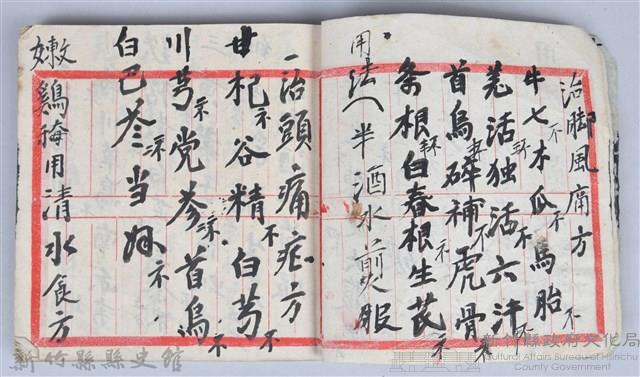 治腳風痛方
牛七木瓜馬胎
羌活独活六汗
首烏碎補虎骨
条根白春根生芪
用法 半酒水煎服
一治頭痛症方
甘杞谷精白芎
川芎党參首烏
白巴參当
嫩鷄 用清水食方
新竹縣縣史館
新竹縣政府文化局
Cultural Affairs Bureau of Hsinchu
County Government